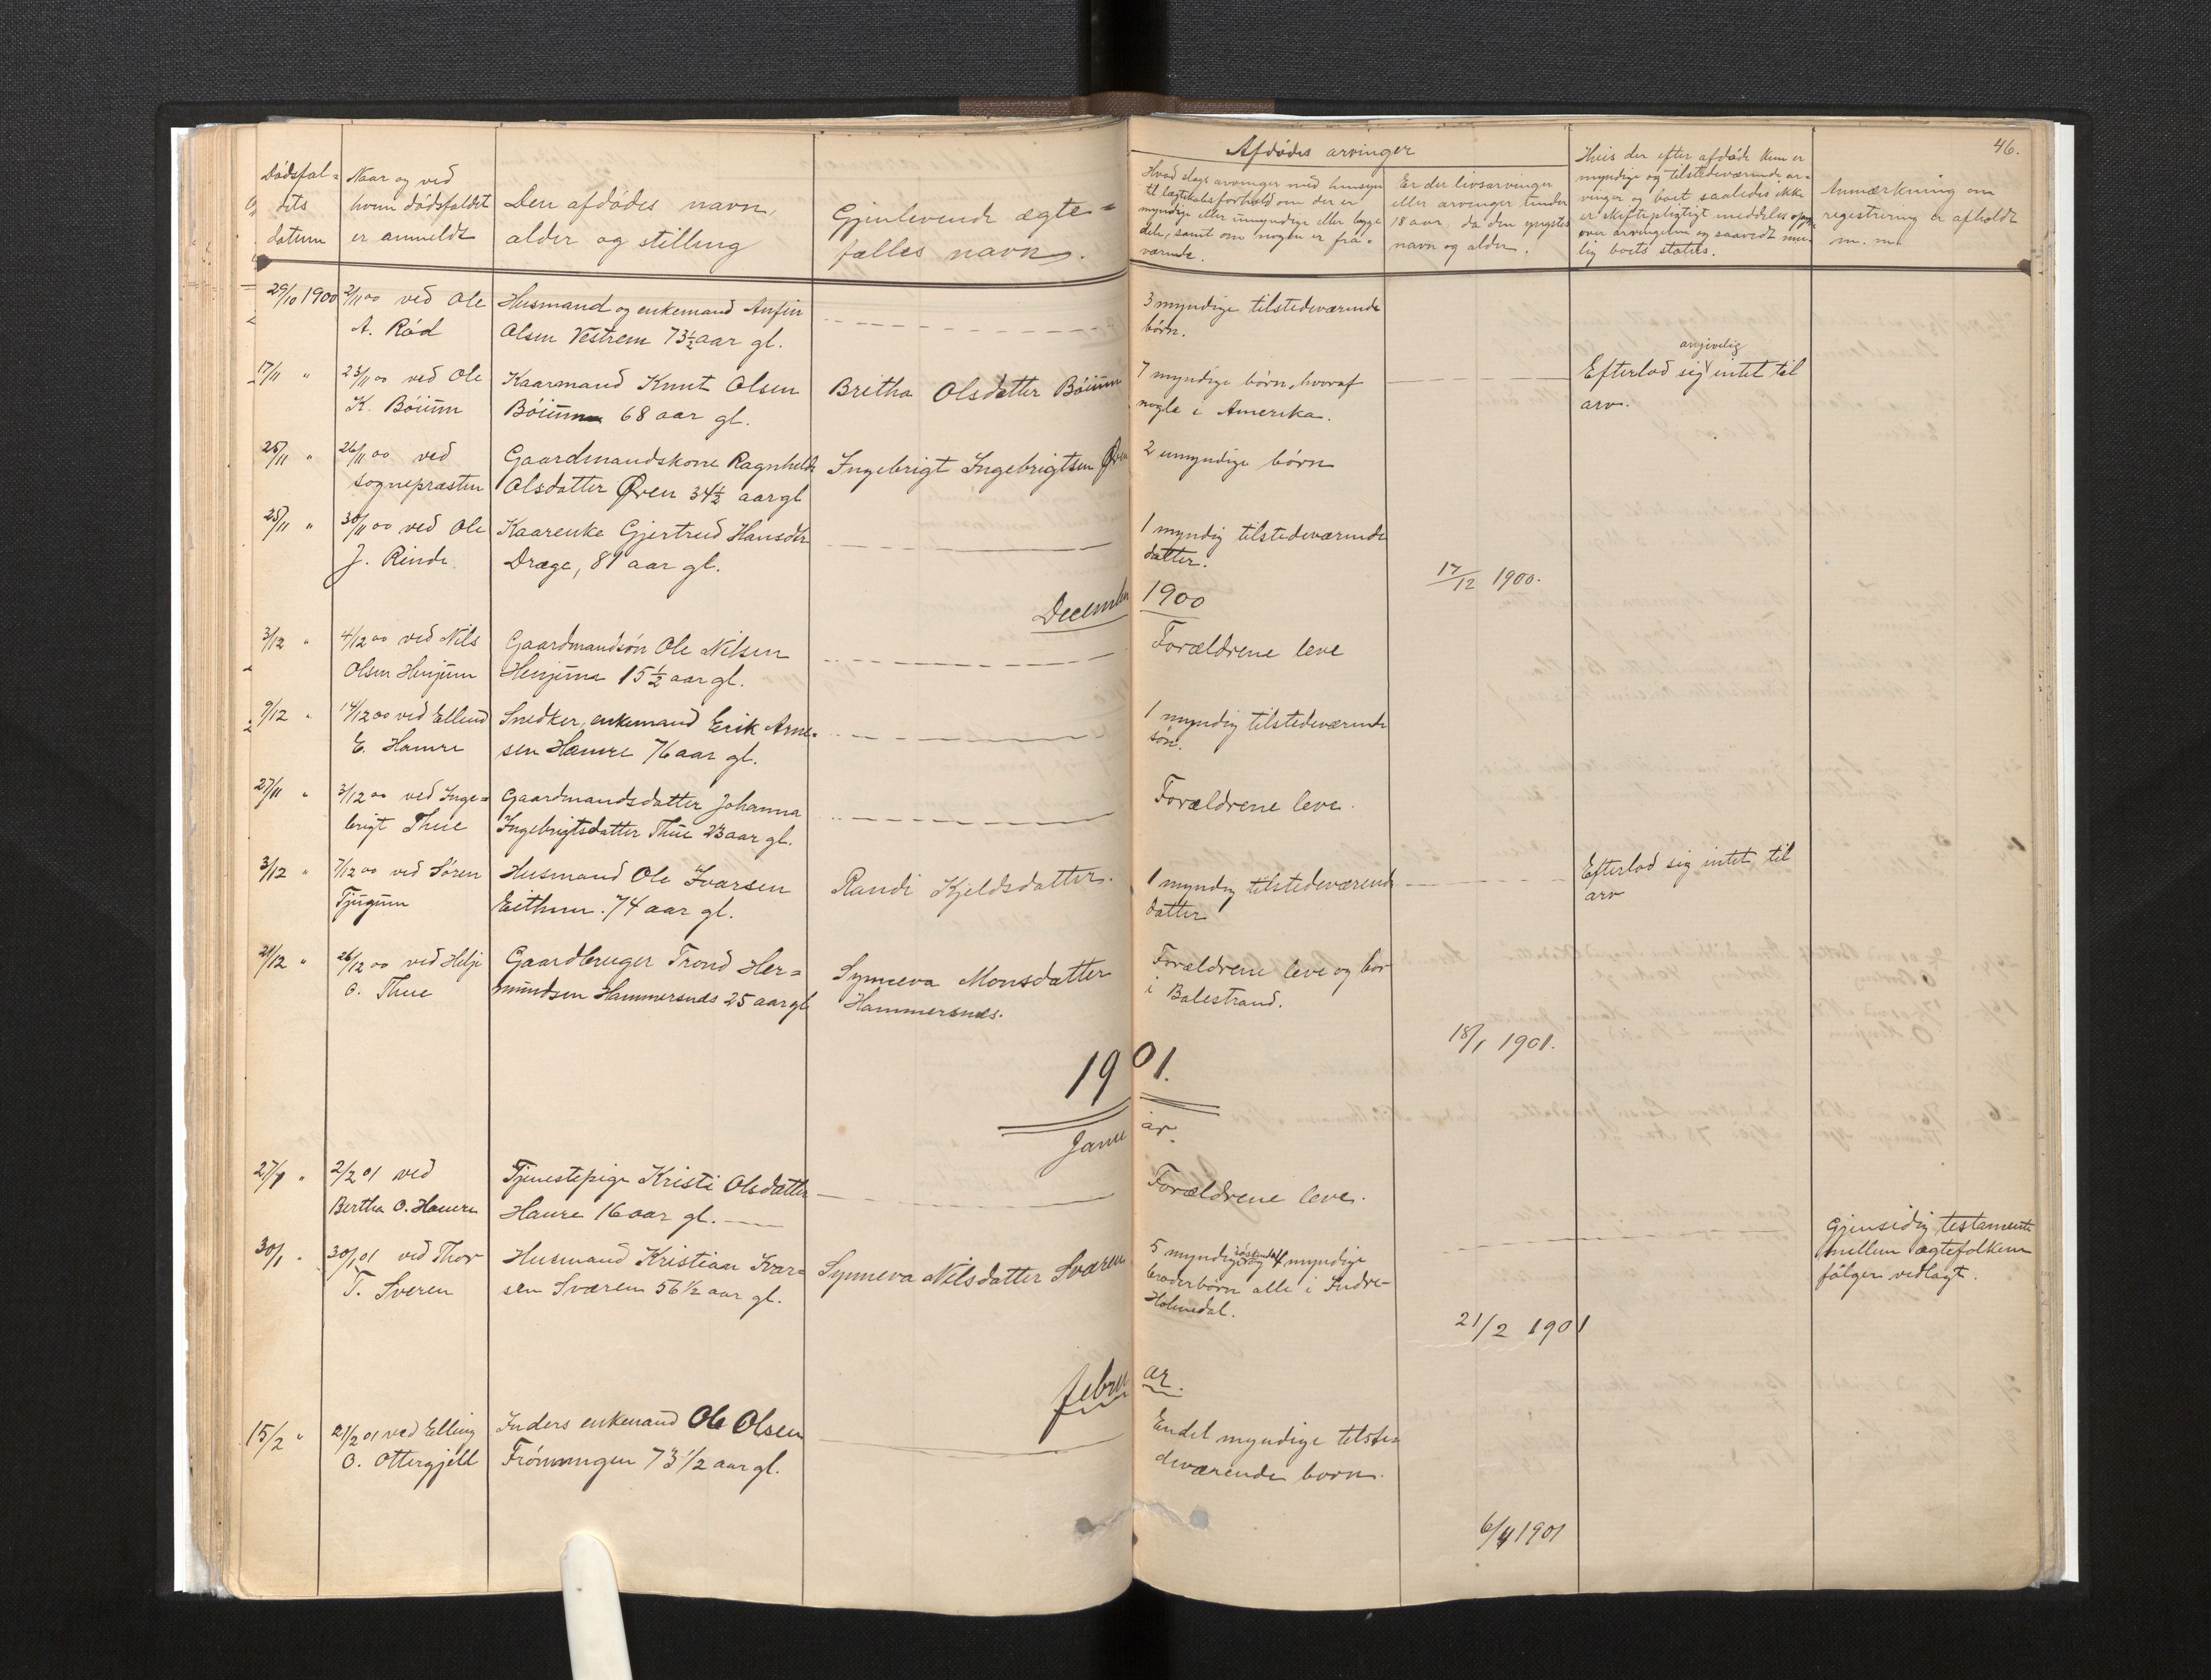 46.
Dödsfal=
dets
datum
Naar og ved
hvem dödsfaldet
er anmeldt
Den afdödes navn,
alder og stilling
Gjenlevende ægte=
fælles navn.
Afdödes arvinger
Hvad slags arvinger med hensyn
til slægtskabsforhold om der er
myndige eller umyndige eller begge
dele, samt om nogen er fra=
værende.
Er der livsarvinger
eller arvinger under
18 aar, da den yngstes
navn og alder.
Hvis der efter afdöde kun er
myndige og tilstedeværende ar=
vinger og boet saaledes ikke
er skiftepligtigt meddeles opg.
over arvingerne og saavidt mu=
lig boets status.
Anmærkning om
registrering er afholdt
m. m.
29/10 1900
2/11 00 ved Ole
A. Röd
Husmand og enkemand Anfin
Olsen Vestrem 73½ aar gl.
3 myndige tilstedeværende
börn.
17/11 "
23/11 00 ved Ole
K. Böium
Kaarmand Knut Olsen
Böium 68 aar gl.
Britha Olsdatter Böium
7 myndige börn, hvoraf
nogle i Amerika.
angivelig
Efterlod sig intet til
arv.
25/11 "
26/11 00 ved
sognepræsten
Gaardmandskone Ragnhild
Olsdatter Øren 34½ aar gl
Ingebrigt Ingebrigtsen Øren
2 umyndige börn
25/11 "
30/11 00 ved Ole
J. Rinde
Kaarenke Gjertrud Hansdtr
Dræge, 81 aar gl.
1 myndig tilstedeværende
datter.
17/12 1900.
December 1900
3/12 "
4/12 00 ved Nils
Olsen Henjum
Gaardmandsön Ole Nilsen
Henjum 15½ aar gl.
Forældrene leve
9/12 "
14/12 00 ved Ellend
E. Hamre
Snedker, enkemand Erik Arne=
sen Hamre 76 aar gl.
1 myndig tilstedeværende
sön.
27/11 "
3/12 00 ved Inge=
brigt Thue
Gaardmandsdatter Johanna
Ingebrigtsdatter Thue 23 aar gl.
Forældrene leve.
3/12 "
7/12 00 ved Sören
Tjugum
Husmand Ole Ivarsen
Eithun. 74 aar gl.
Randi Kjeldsdatter.
1 myndig tilstedeværende
datter
Efterlod sig intet til
arv
21/12 "
26/12 00 ved Helje
O. Thue
Gaardbruger Trond Her=
mundsen Hammersnes 25 aar gl
Synneva Monsdatter
Hammersnes.
Forældrene leve og bor
i Balestrand.
18/1 1901.
1901.
Januar.
27/1 "
2/2 01 ved
Bertha O. Hamre
Tjenestepige Kristi Olsdatter
Hamre 16 aar gl.
Forældrene leve.
30/1 "
30/1 01 ved Thor
T. Sveren
Husmand Kristian Ivar=
sen Sværen 56½ aar gl.
Synneva Nilsdatter Sværen
5 myndige söskende og 4 myndige
broderbörn alle i Indre-
Holmedal.
Gjensidig testamente
mellem ægtefolkene
fölger vedlagt.
21/2 1901
Februar.
15/2 "
21/2 01 ved Elling
O. Ottergjeld
Inders enkemand Ole Olsen
Frönningen 73 ½ aar gl.
Endel myndige tilste=
deværende börn.
6/4 1901